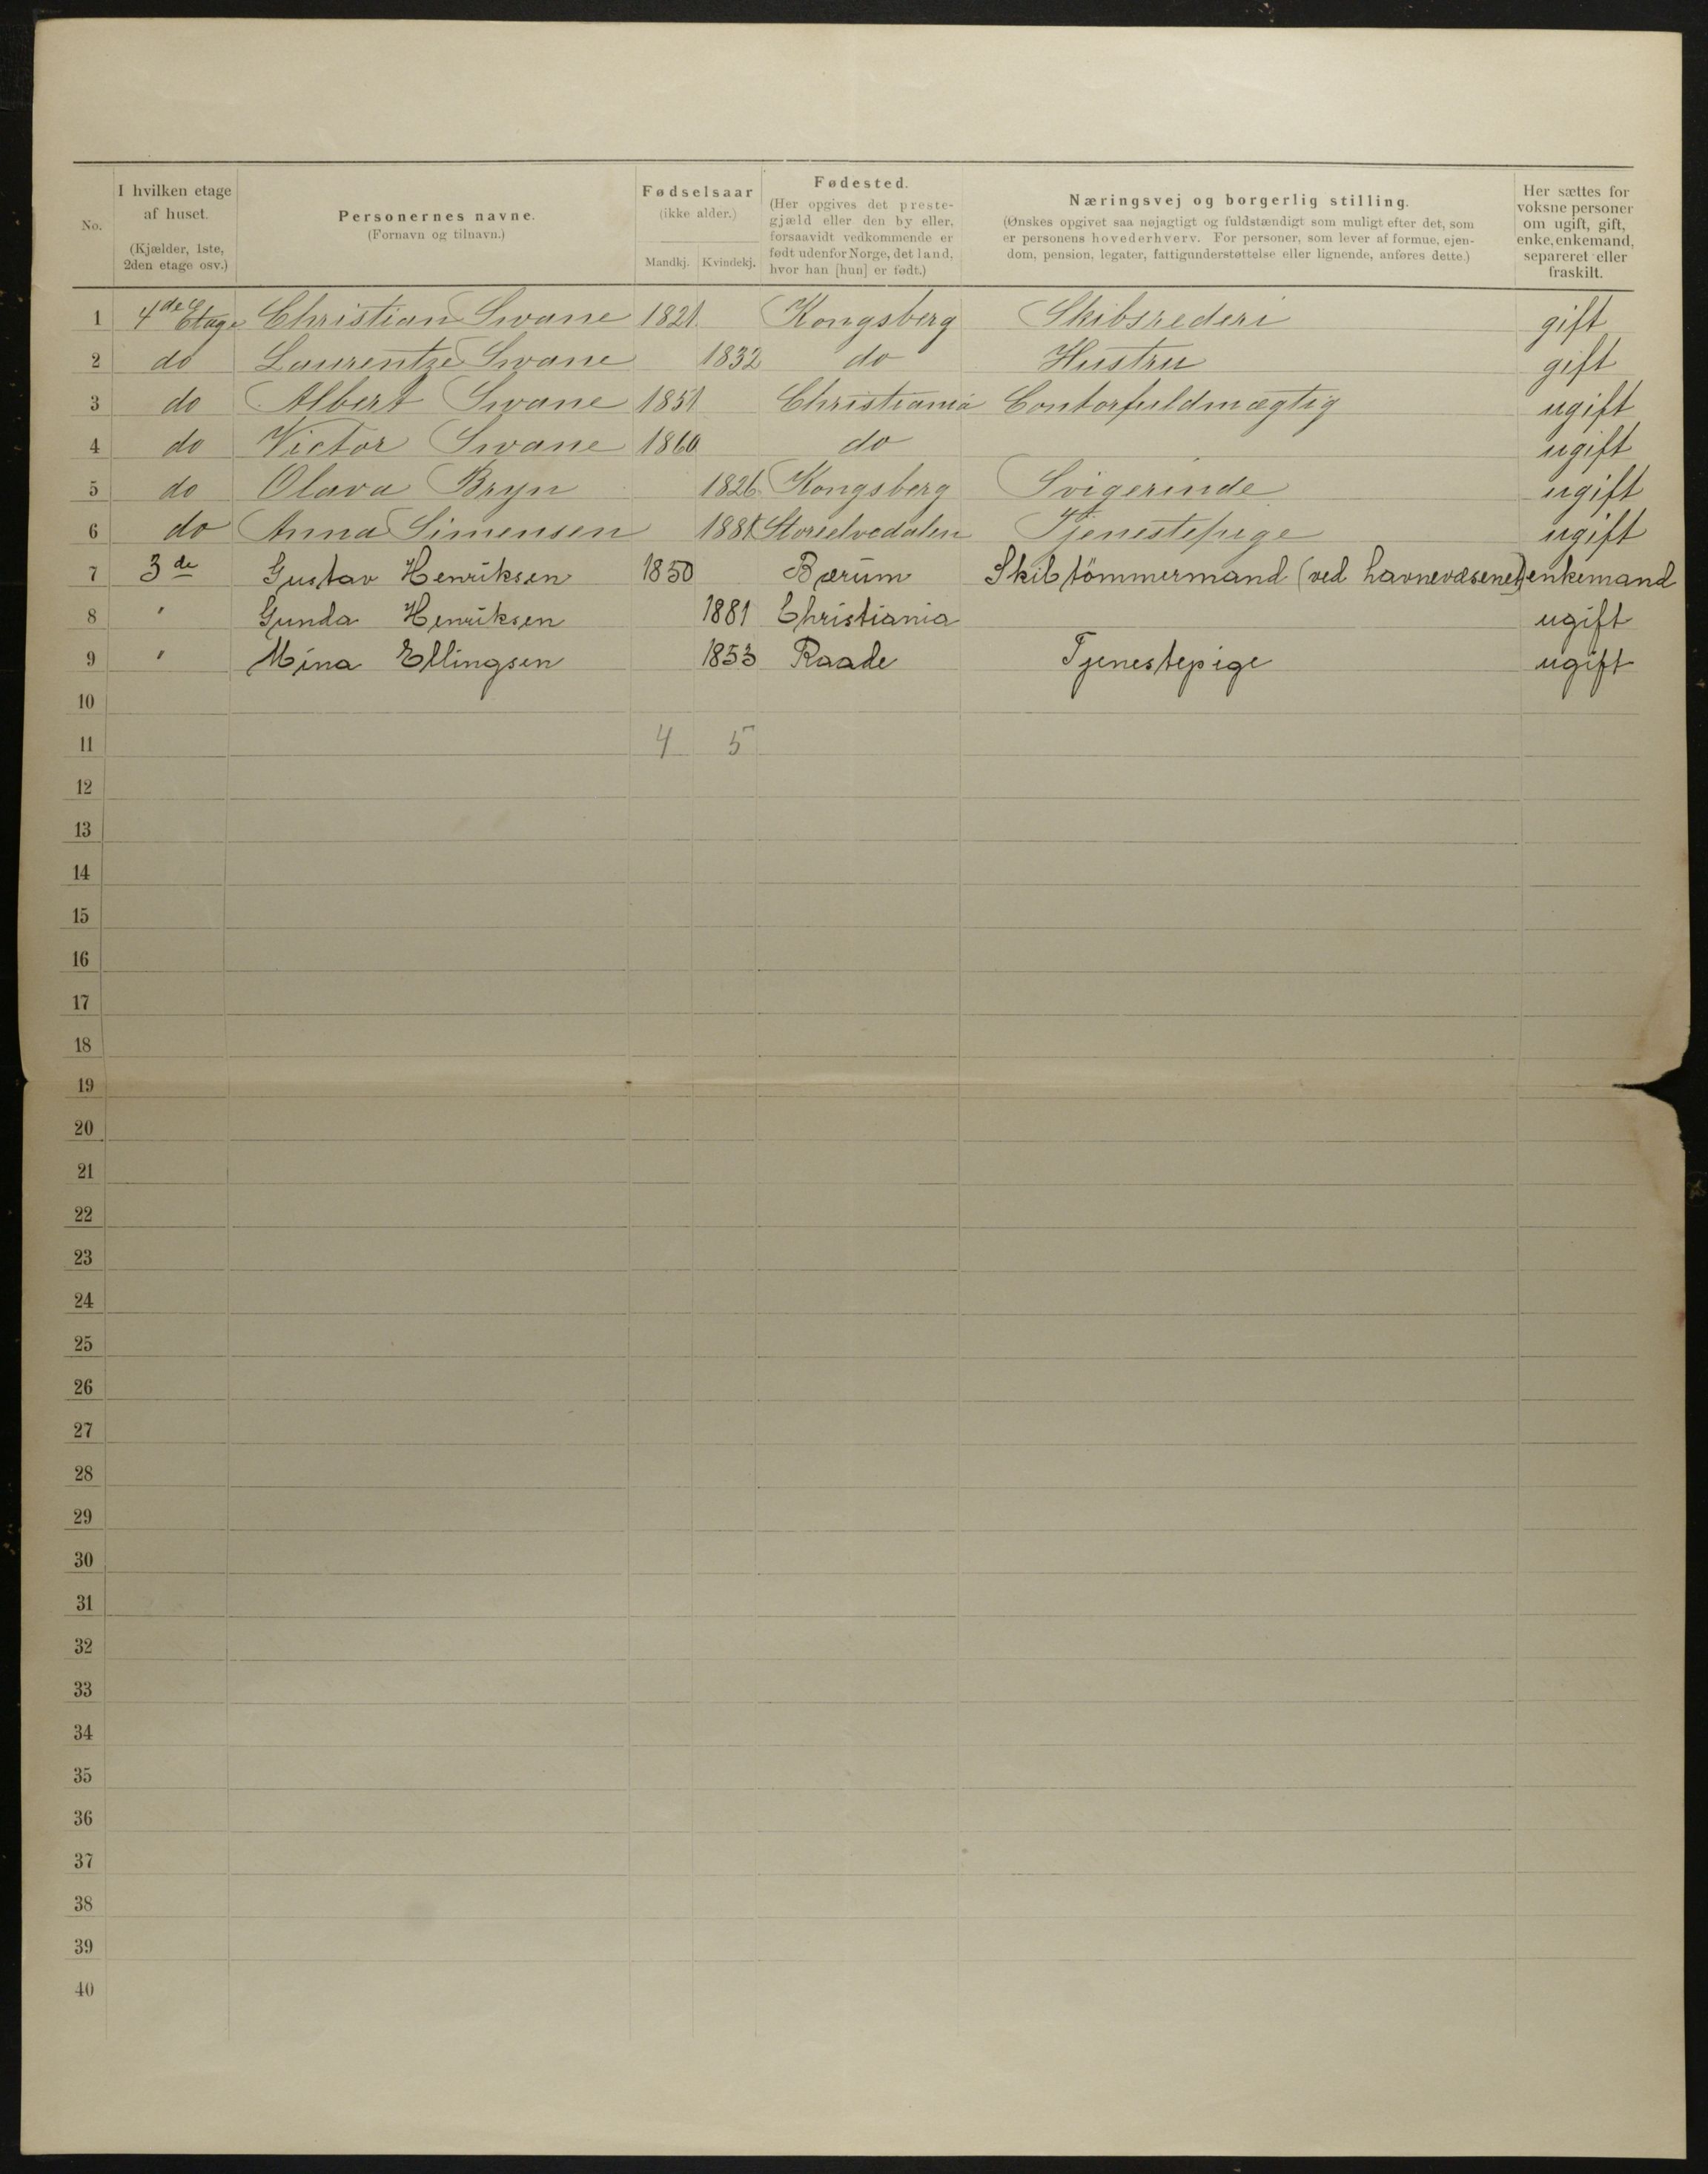 No.
I hvilken etage
af huset.
(Kjælder, 1ste,
2den etage osv.)
Personernes navne.
(Fornavn og tilnavn.)
Fødselsaar
(ikke alder.)
Mandkj. Kvindekj.
Fødested.
(Her opgives det preste-
gjæld eller den by eller,
forsaavidt vedkommende er
født udenfor Norge, det land,
hvor han [hun] er født.)
Næringsvej og borgerlig stilling.
(Ønskes opgivet saa nøjagtigt og fuldstændigt som muligt efter det, som
er personens hovederhverv. For personer, som lever af formue, ejen-
dom, pension, legater, fattigunderstøttelse eller lignende, anføres dette.)
Her sættes for
voksne personer
om ugift, gift,
enke, enkemand,
separeret eller
fraskilt.
1 4de Etage Christian Swane 1821 Kongsberg Skibsrederi gift
2 do Laurentze Swane 1832 do Hustru gift
3 do Albert Swane 1851 Christiania Contorfuldmægtig ugift
4 do Victor Swane 1860 do ugift
5 do Olava Bryn 1826 Kongsberg Svigerinde ugift
6 do Anna Simensen Storelvedalen Tjenestepige ugift
7 3de Gustav Henriksen 1850 Bærum Skibtömmermand (ved havnevæsenet) enkemand
8 " Gunda Henriksen 1881 Christiania ugift
9 " Mina Ellingsen 1853 Raade Tjenestepige ugift
10
11 4 5
12
13
14
15
16
17
18
19
20
21
22
23
24
25
26
27
28
29
30
31
32
33
34
35
36
37
38
39
40